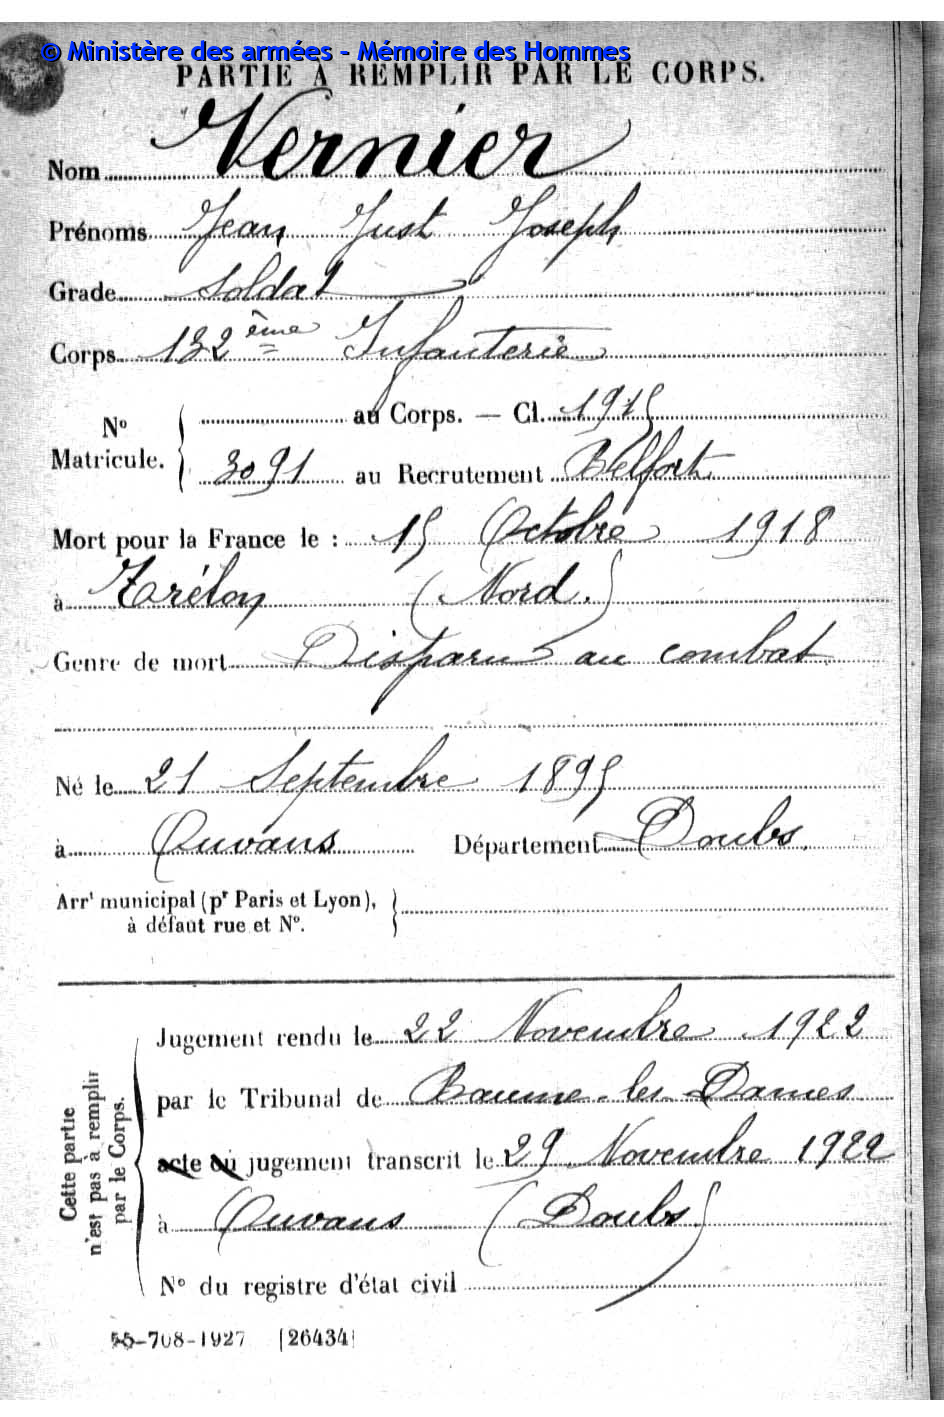 © Ministère des armées - Mémoire des Hommes
PARTIE À REMPLIR PAR LE CORPS.
Nom Vernier
Prénoms Jean Just Joseph
Grade Soldat
Corps 132ème Infanterie
N° Matricule. { au Corps. — Cl. 1915
3091 au Recrutement Belfort
Mort pour la France le : 15 Octobre 1918
à Trélon (Nord.)
Genre de mort Disparu au combat
Né le 21 Septembre 1895
à Ouvans Département Doubs.
Arrt municipal (pr Paris et Lyon),
à défaut rue et N°.
Cette partie
n'est pas à remplir
par le Corps.
Jugement rendu le 22 Novembre 1922
par le Tribunal de Baume-les-Dames
acte ou jugement transcrit le 29 Novembre 1922
à Ouvans (Doubs)
N° du registre d'état civil
55-708-1927 [26434]